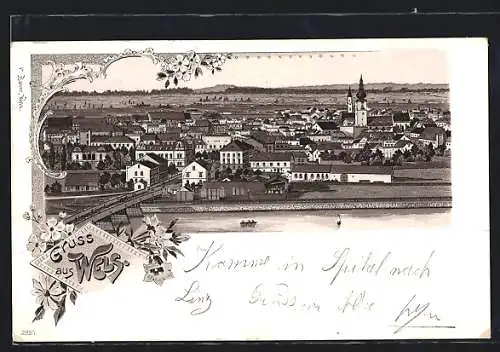 Gruss
aus WELS.
Komme in Spital nach
Linz Gruss an Alle
2951